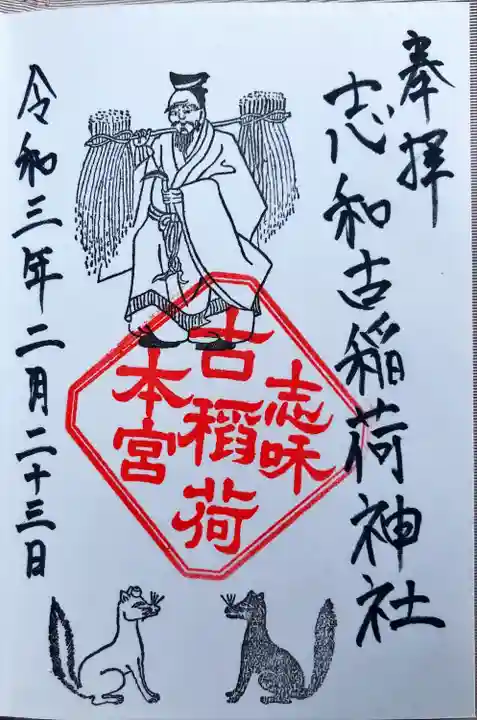 奉拝
志和古稲荷神社
志味
古稻荷
本宮
令和三年二月二十三日